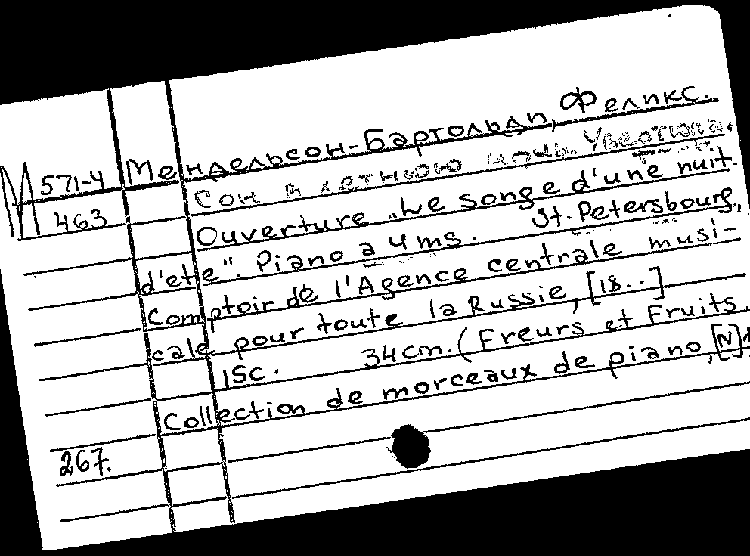 М 571-4
463
Мендельсон-Бартольди, Феликс.
Сон в летнюю ночь. Увертюра.
Ouverture „Le songe d'une nuit
d'ete". Piano a 4 ms. St. Petersbourg,
Comptoir de l'Agence centrale musi-
cale pour toute la Russie, [18..]
15c. 34cm. (Freurs et Fruits.
Collection de morceaux de piano, [N]
267.